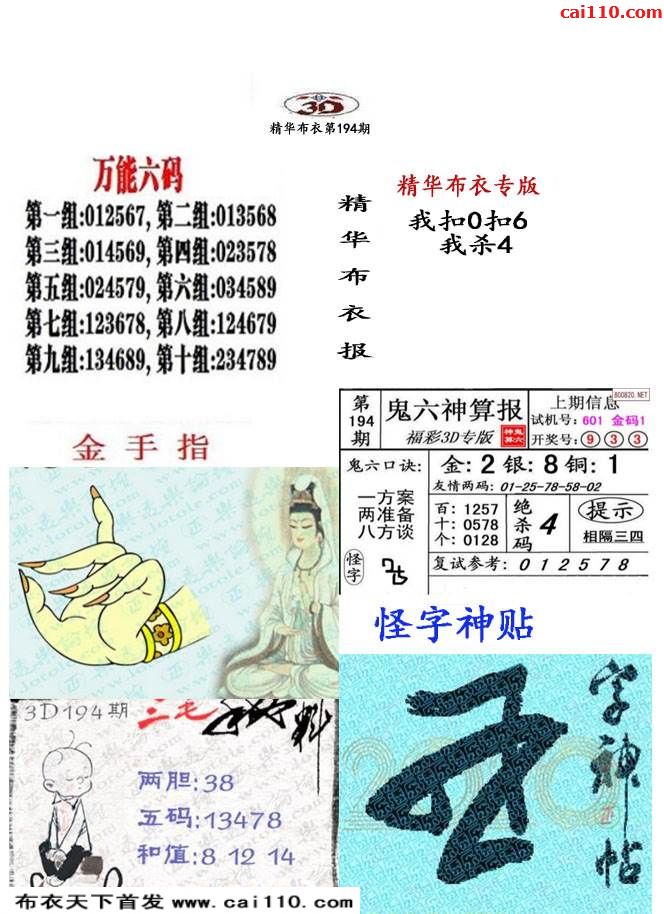 cai110.com
3D
精华布衣第194期
万能六码
第一组:012567,第二组:013568
第三组:014569,第四组:023578
第五组:024579,第六组:034589
第七组:123678,第八组:124679
第九组:134689,第十组:234789
精华布衣报
精华布衣专版
我扣0扣6
我杀4
第194期
鬼六神算报
福彩3D专版
神鬼算六
上期信息
800820.NET
试机号:601 金码1
开奖号:933
鬼六口诀:
金:2银:8铜:1
友情两码:01-25-78-58-02
一方案
两准备
八方谈
百:1257
十:0578
个:0128
绝杀码 4
提示
相隔三四
怪字
复试参考:012578
金手指
怪字神贴
3D194期
三毛
料
两胆:38
五码:13478
和值:8 12 14
字神帖
布衣天下首发 www.cai110.com